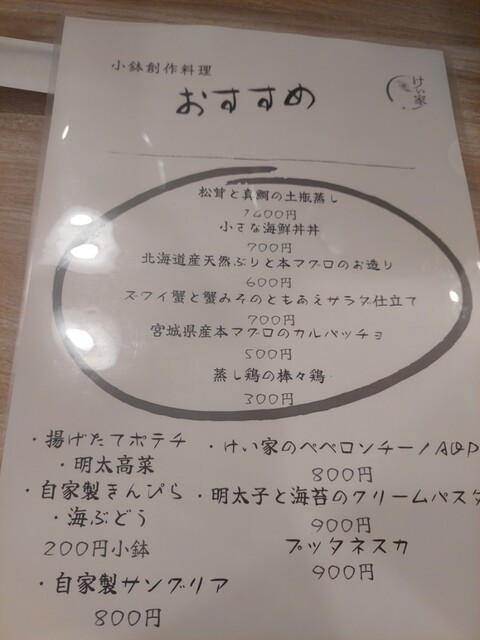 小鉢創作料理
おすすめ
けい家
松茸と真鯛の土瓶蒸し
1600円
小さな海鮮丼丼
700円
北海道産天然ぶりと本マグロのお造り
600円
ズワイ蟹と蟹みそのともあえサラダ仕立て
700円
宮城県産本マグロのカルパッチョ
500円
蒸し鶏の棒々鶏
300円
・揚げたてポテチ
・明太高菜
・自家製きんぴら
・海ぶどう
200円小鉢
・自家製サングリア
800円
・けい家のペペロンチーノA&P
800円
・明太子と海苔のクリームパスタ
900円
プッタネスカ
900円